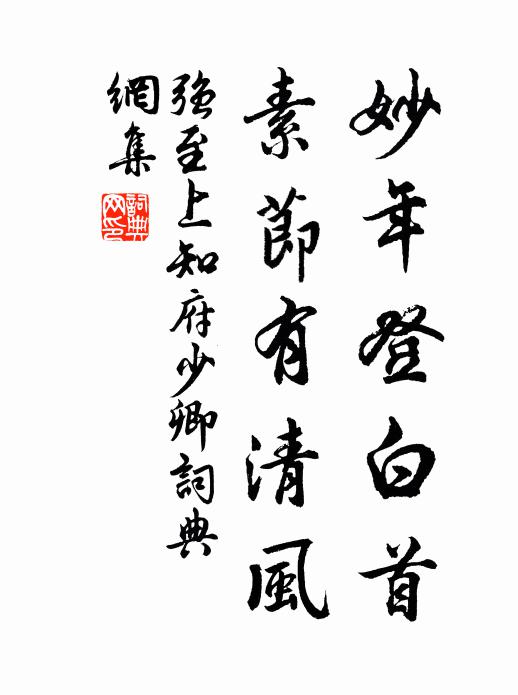 妙年登白首
素節有清風
強至上知府少卿詞典
網集
詞典網印